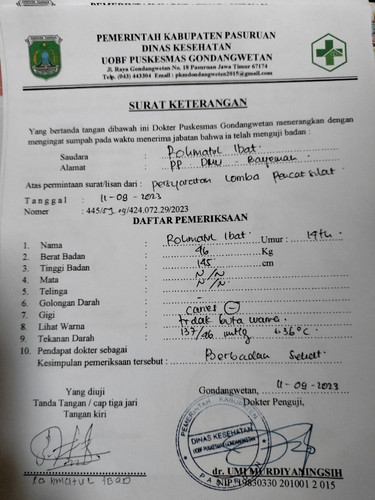 PEMERINTAH KABUPATEN PASURUAN
DINAS KESEHATAN
UOBF PUSKESMAS GONDANGWETAN
Jl. Raya Gondangwetan No. 18 Pasuruan Jawa Timur 67174
Telp. (043) 443304 Email : pkmgondangwetan2015@gmail.com
SURAT KETERANGAN
Yang bertanda tangan dibawah ini Dokter Puskesmas Gondangwetan menerangkan dengan
mengingat sumpah pada waktu menerima jabatan bahwa ia telah menguji badan :
Saudara : Rohmatul Ibat.
Alamat : PP DMU - Bayeman
Atas permintaan surat/lisan dari : persyaratan Lomba Pencat Silat
Tanggal : 11-09-2023
Nomor : 445/ /424.072.29/2023
DAFTAR PEMERIKSAAN
1. Nama : Rohmatul Ibat. Umur : 14th
2. Berat Badan : 46 Kg
3. Tinggi Badan : 145 cm
4. Mata : N/N
5. Telinga : N/N
6. Golongan Darah : -
7. Gigi : caries
8. Lihat Warna : tidak buta warna
9. Tekanan Darah : 137/ mmHg 36°C
10. Pendapat dokter sebagai
Kesimpulan pemeriksaan tersebut : Berbadan Sehat
Yang diuji
Tanda Tangan / cap tiga jari
Tangan kiri
Gondangwetan, 11-09-2023
Dokter Penguji,
PEMERINTAH KABUPATEN
DINAS KESEHATAN
UOBF PUSKESMAS GONDANGWETAN
dr. UMI MURDIYANINGSIH
NIP 19830330 201001 2 015